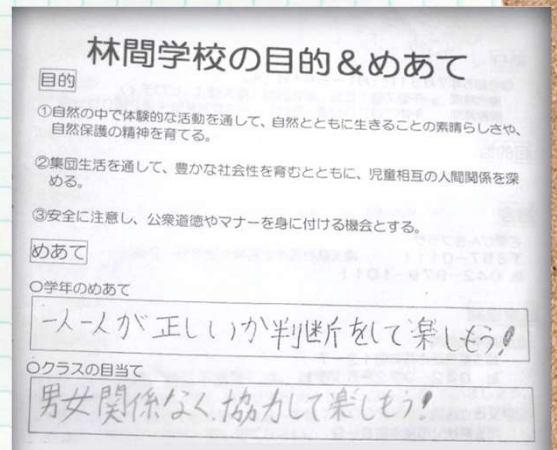 林間学校の目的＆めあて
目的
①自然の中で体験的な活動を通して、自然とともに生きることの素晴らしさや、
自然保護の精神を育てる。
②集団生活を通して、豊かな社会性を育むとともに、児童相互の人間関係を深
める。
③安全に注意し、公衆道徳やマナーを身に付ける機会とする。
めあて
○学年のめあて
一人一人が正しいか判断をして楽しもう!
○クラスの目当て
男女関係なく、協力して楽しもう!